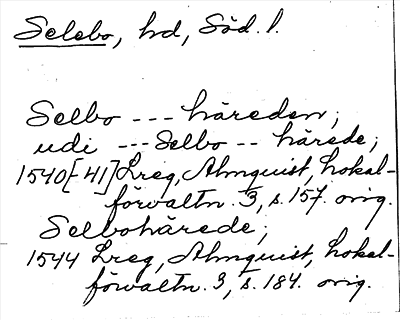 Selebo, hd, Söd. l.
Selbo --- häreden;
udi --- Selbo -- härede;
1540[-41] Lreg, Almquist, Lokal-
förvaltn. 3, s. 157. orig.
Selbohärede;
1544 Lreg, Almquist, Lokal-
förvaltn. 3, s. 184. orig.